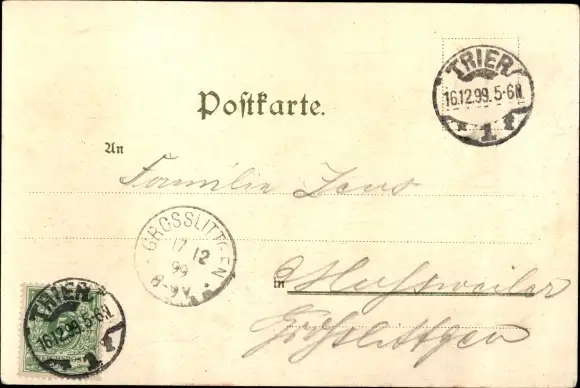 Postkarte.
TRIER
16.12.99. 5-6N.
* 1 f
An
Familie Zens
GROSSLITTGEN
17 12
99
8-9V.
in Musweiler
Großlittgen
TRIER
16.12.99. 5-6N.
* 1 f